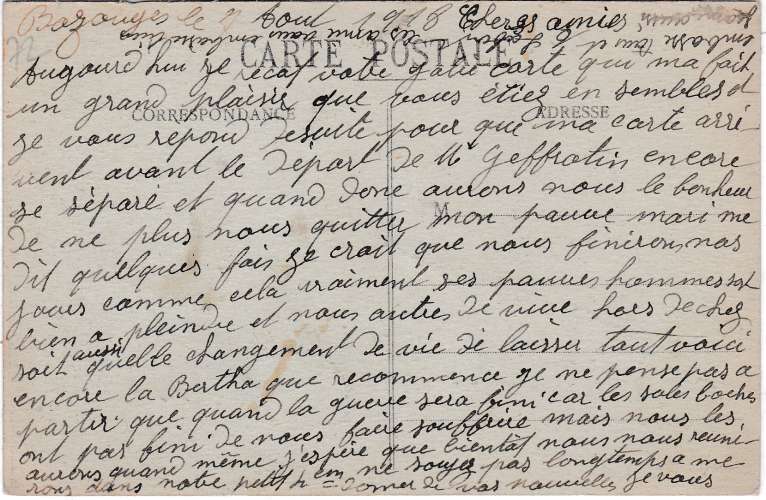 Bazouges le 7 Aout 1918 Cheres amies,
CARTE POSTALE
CORRESPONDANCE
ADRESSE
M
Aujourd hui je recoi votre gatie carte qui ma fait
un grand plaisir que vous étiez en sembles et
je vous répond esuite pour que ma carte arri
vent avant le Départ de Mr Geffrotin encore
se séparé et quand donc aurons nous le bonheur
de ne plus nous quitter mon pauve mari me
dit quelques fois je crait que nous finirons nos
jours comme cela vraiment ses pauves hommes sont
bien a pleindre et nous autres de vivre hors de chez
soit aussi quelle changement de vie de laisser tout voici
encore la Bertha que recommence je ne pense pas a
partir que quand la guerre sera fini car les sales boches
ont pas fini de nous faire souffrire mais nous les
aurons quand même j'espère que bientot nous nous reuni-
rons dans notre petit ne soyez pas longtemps a me
domer de vos nouvelles je vous
embrasse tous